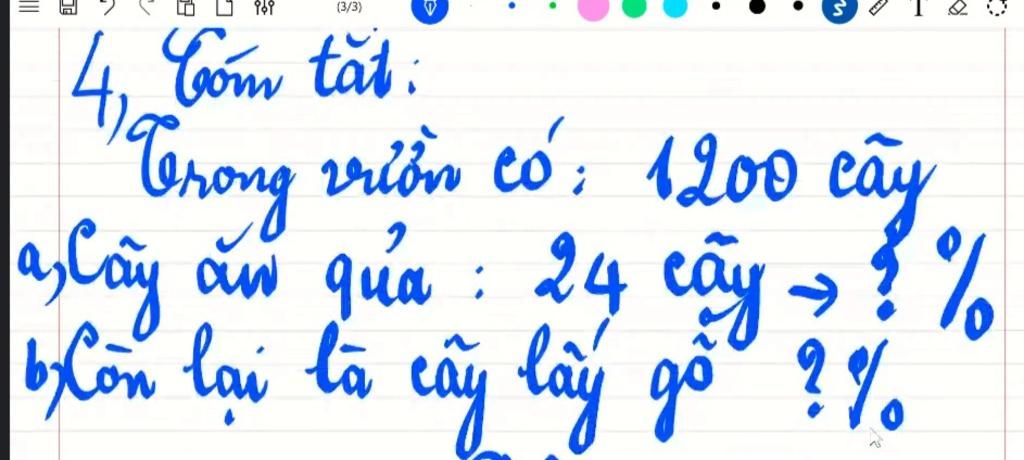 (3/3)
4, Tóm tắt:
Trong vườn có: 1200 cây
a, Cây ăn quả : 24 cây → ? %
b, Còn lại là cây lấy gỗ ? %